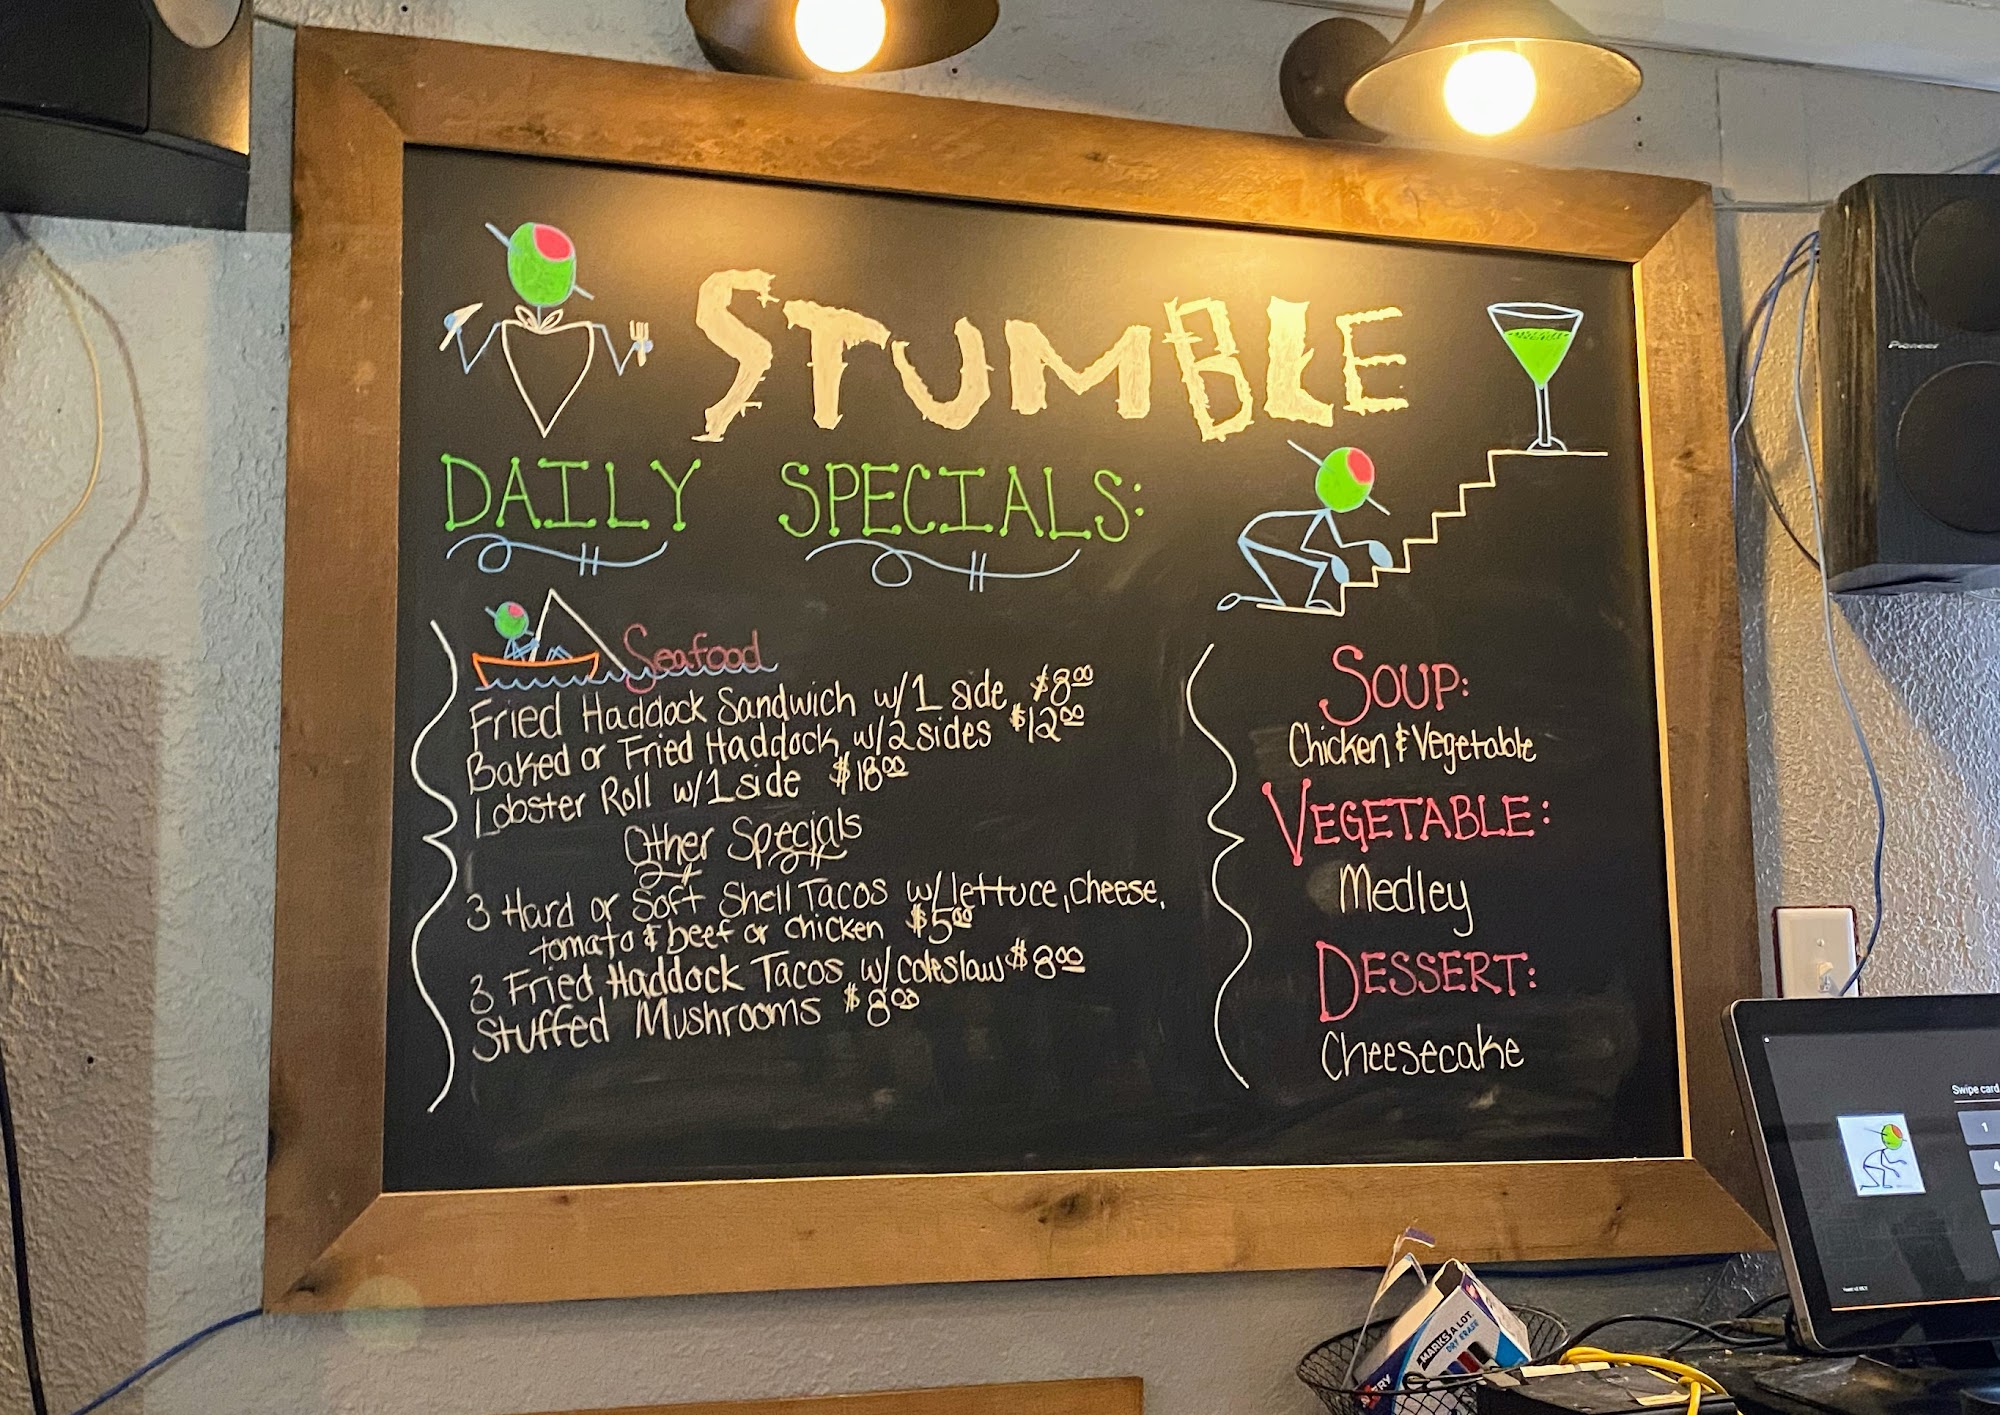 STUMBLE
DAILY SPECIALS:
Seafood
Fried Haddock Sandwich w/1 side $8.00
Baked or Fried Haddock w/2 sides $12.00
Lobster Roll w/1 side $18.00
Other Specials
3 Hard or Soft Shell Tacos w/lettuce, cheese,
tomato & beef or chicken $5.00
3 Fried Haddock Tacos w/ coleslaw $8.00
Stuffed Mushrooms $8.00
SOUP:
Chicken & Vegetable
VEGETABLE:
Medley
DESSERT:
Cheesecake
Pioneer
Swipe card
1
4
MARKS A LOT
DRY ERASE